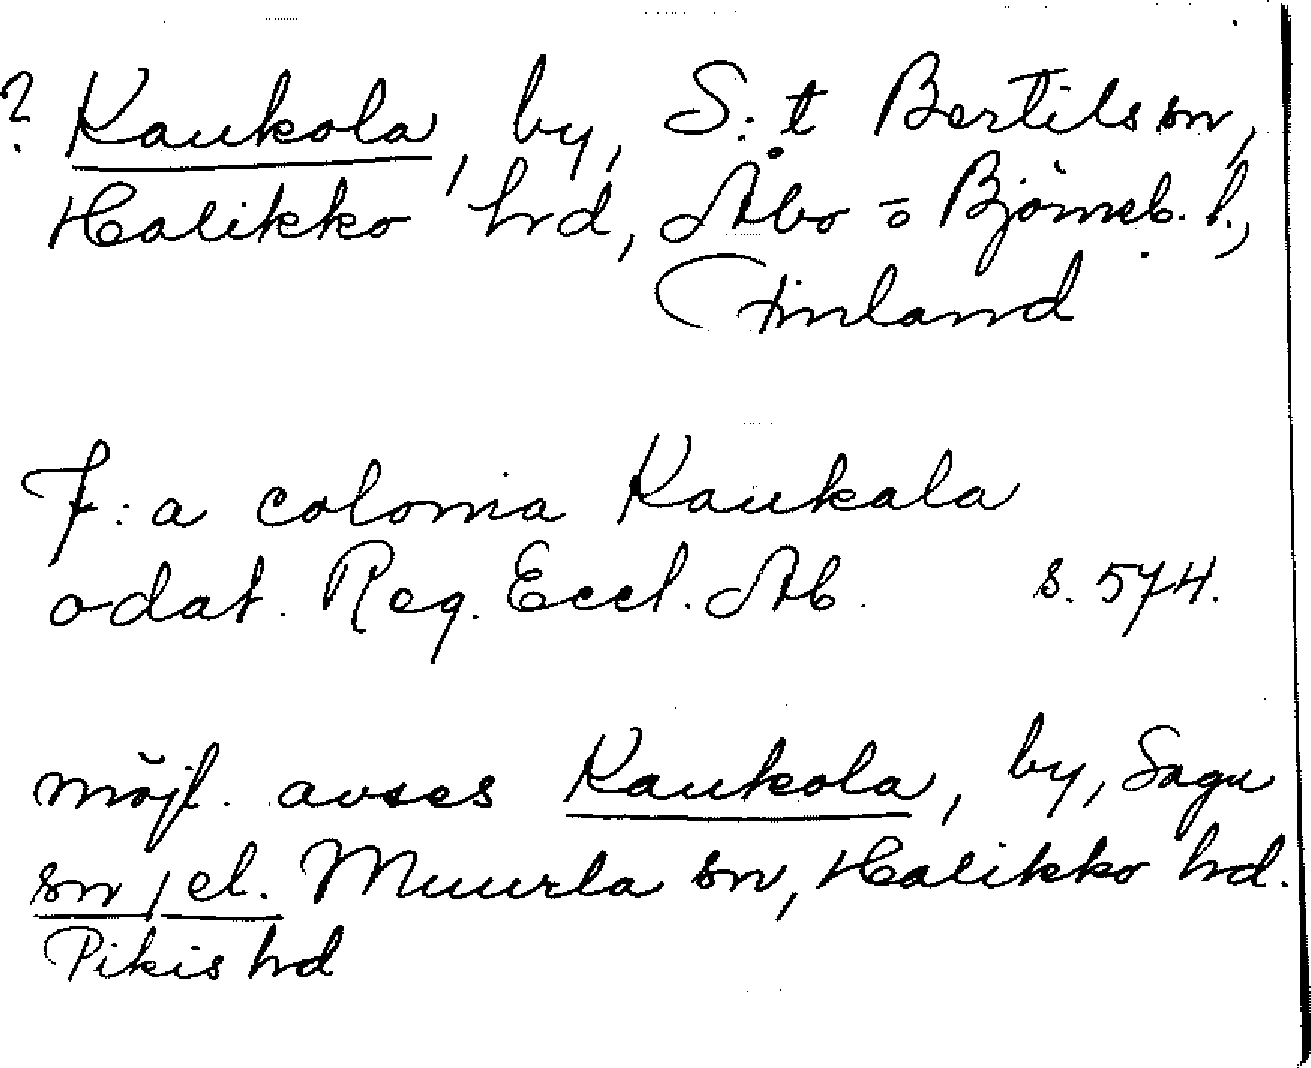 ? Kaukola, by, S:t Bertils sn,
Halikko hrd, Åbo o Björneb. l.,
Finland
F:a colonia Kaukala
odat. Reg. Eccl. Ab. s. 574.
möjl. avses Kaukola, by, Sagu
sn, el. Muurla sn, Halikko hrd.
Pikis hrd